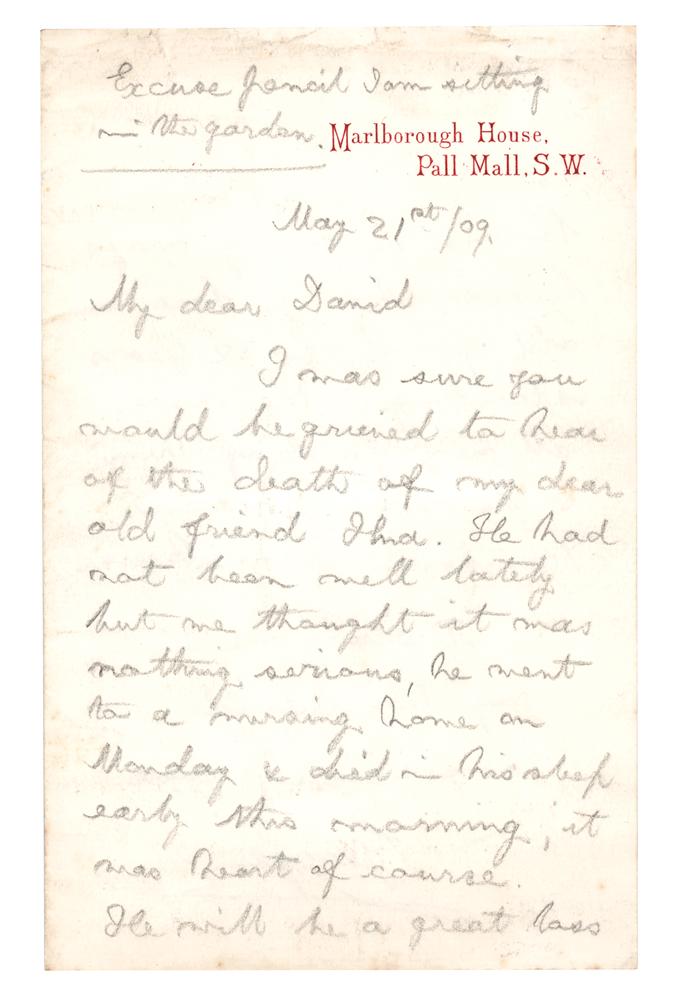 Excuse pencil I am sitting
in the garden.
Marlborough House,
Pall Mall, S.W.
May 21st/09.
My dear David
I was sure you
would be grieved to hear
of the death of my dear
old friend He had
not been well lately
but we thought it was
nothing serious, he went
to a nursing home on
Monday & died in his sleep
early this morning, it
was heart of course.
He will be a great loss